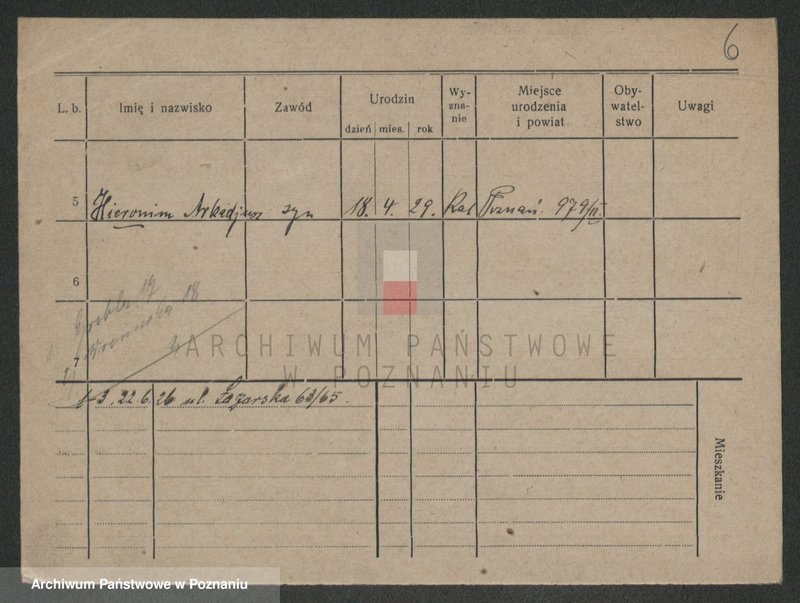 6
L. b. Imię i nazwisko Zawód Urodzin Wy-zna-nie Miejsce urodzenia i powiat Oby-watel-stwo Uwagi
dzień mies. rok
5 Hieronim Arkadjusz syn 18. 4. 29. Kat Poznań 979/II.
6
Grobla 19
Wroniecka 18
7
ARCHIWUM PAŃSTWOWE
W POZNANIU
1-3. 22.6. 26 ul. Łazarska 63/65.
Mieszkanie
Archiwum Państwowe w Poznaniu